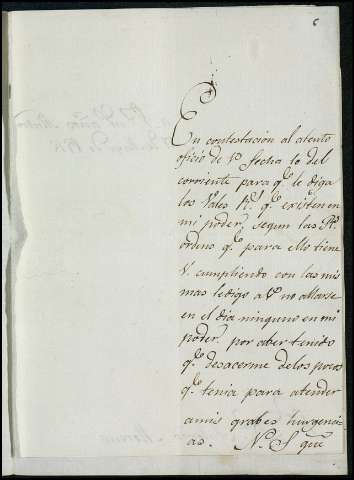 6
En contestación al atento
oficio de V. fecha 10 del
corriente para qe. le diga
los Vales Rs. qe. existen en
mi poder, segun las Rs.
ordenes qe. para ello tiene
V. cumpliendo con las mis
mas le digo a V. no allarse
en el dia ninguno en mi
poder, por aber tenido
qe. desacerme de los pocos
qe. tenia para atender
a mis grabes hurgenci
as. No. S que